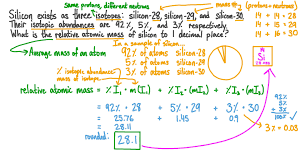 Same protons, different neutrons
mass # (protons + neutrons)
Silicon exists as three isotopes: silicon-28, silicon-29, and silicon-30.
14 + 14 = 28
Their isotopic abundances are 92%, 5%, and 3% respectively.
14 + 15 = 29
What is the relative atomic mass of silicon to 1 decimal place?
14 + 16 = 30
In a sample of silicon...
Average mass of an atom
92% of atoms silicon-28
5% of atoms silicon-29
3% of atoms silicon-30
% isotopic abundance
mass of isotope
14
Si
Silicon
relative atomic mass = %I₁ · m(I₁) + %I₂ · (mI₂) + %I₃ · (mI₃)
= 92% · 28 + 5% · 29 + 3% · 30
92%
5%
3%
100% ✓
= 25.76 + 1.45 + 0.9
3% = 0.03
= 28.11
rounded:
28.1